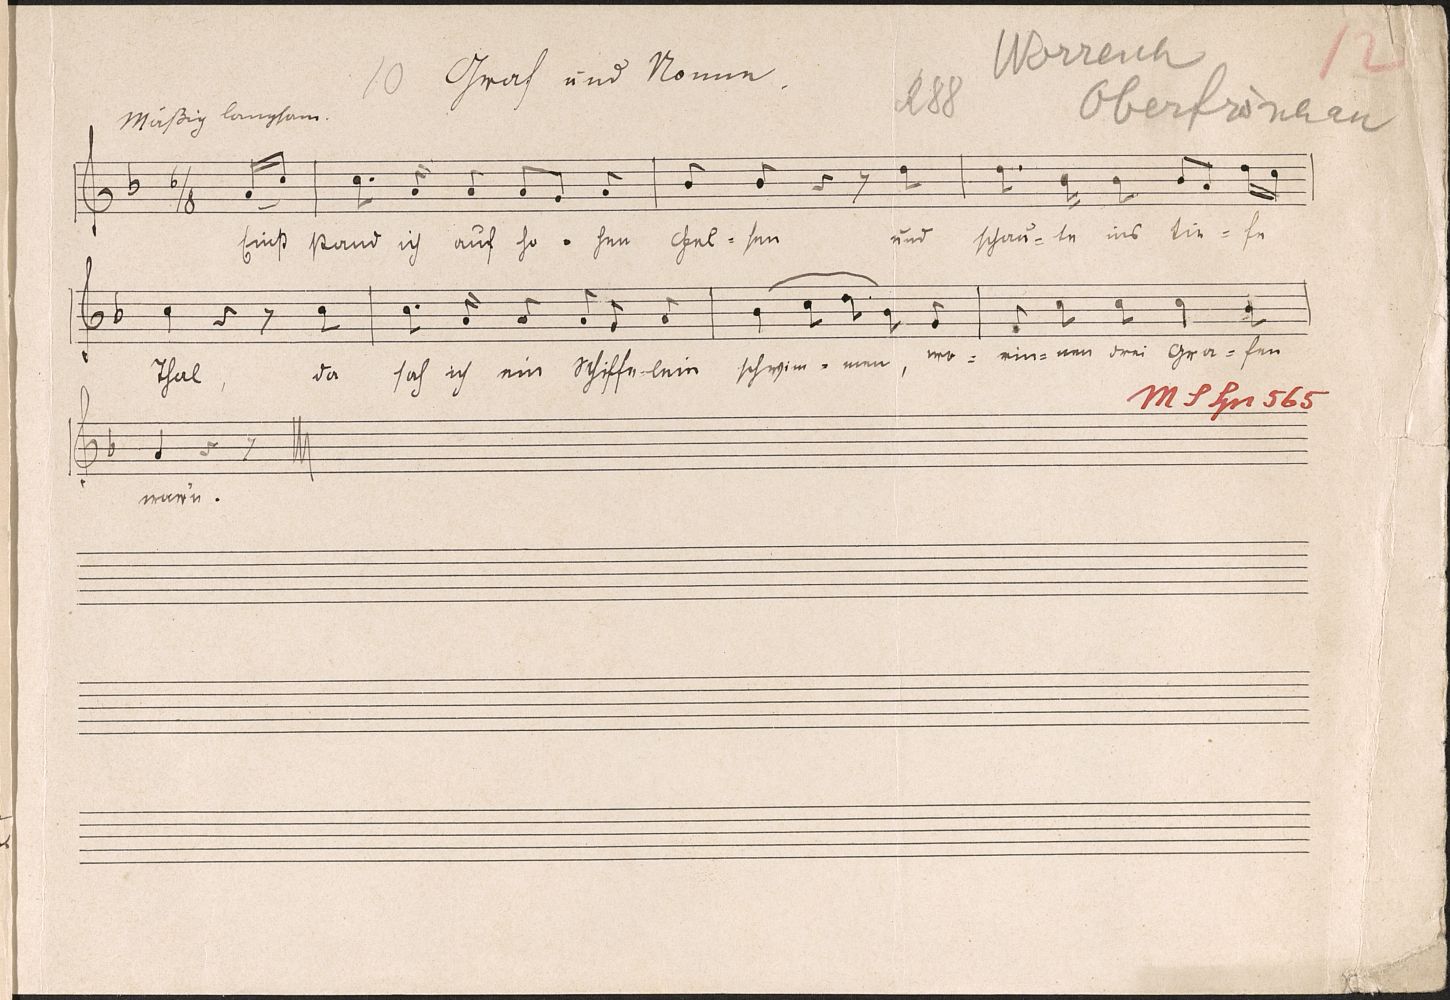 12
10 Graf und Nonne.
288 Worresch
Oberfrönhau
Mäßig langsam.
6/8
Einst stand ich auf ho - hen Fel - sen und schau - te ins tie - fe
Thal, da sah ich ein Schiffe-lein schwim - men, wo - rin - nen drei Gra - fen
MS Gr 565
war'n.